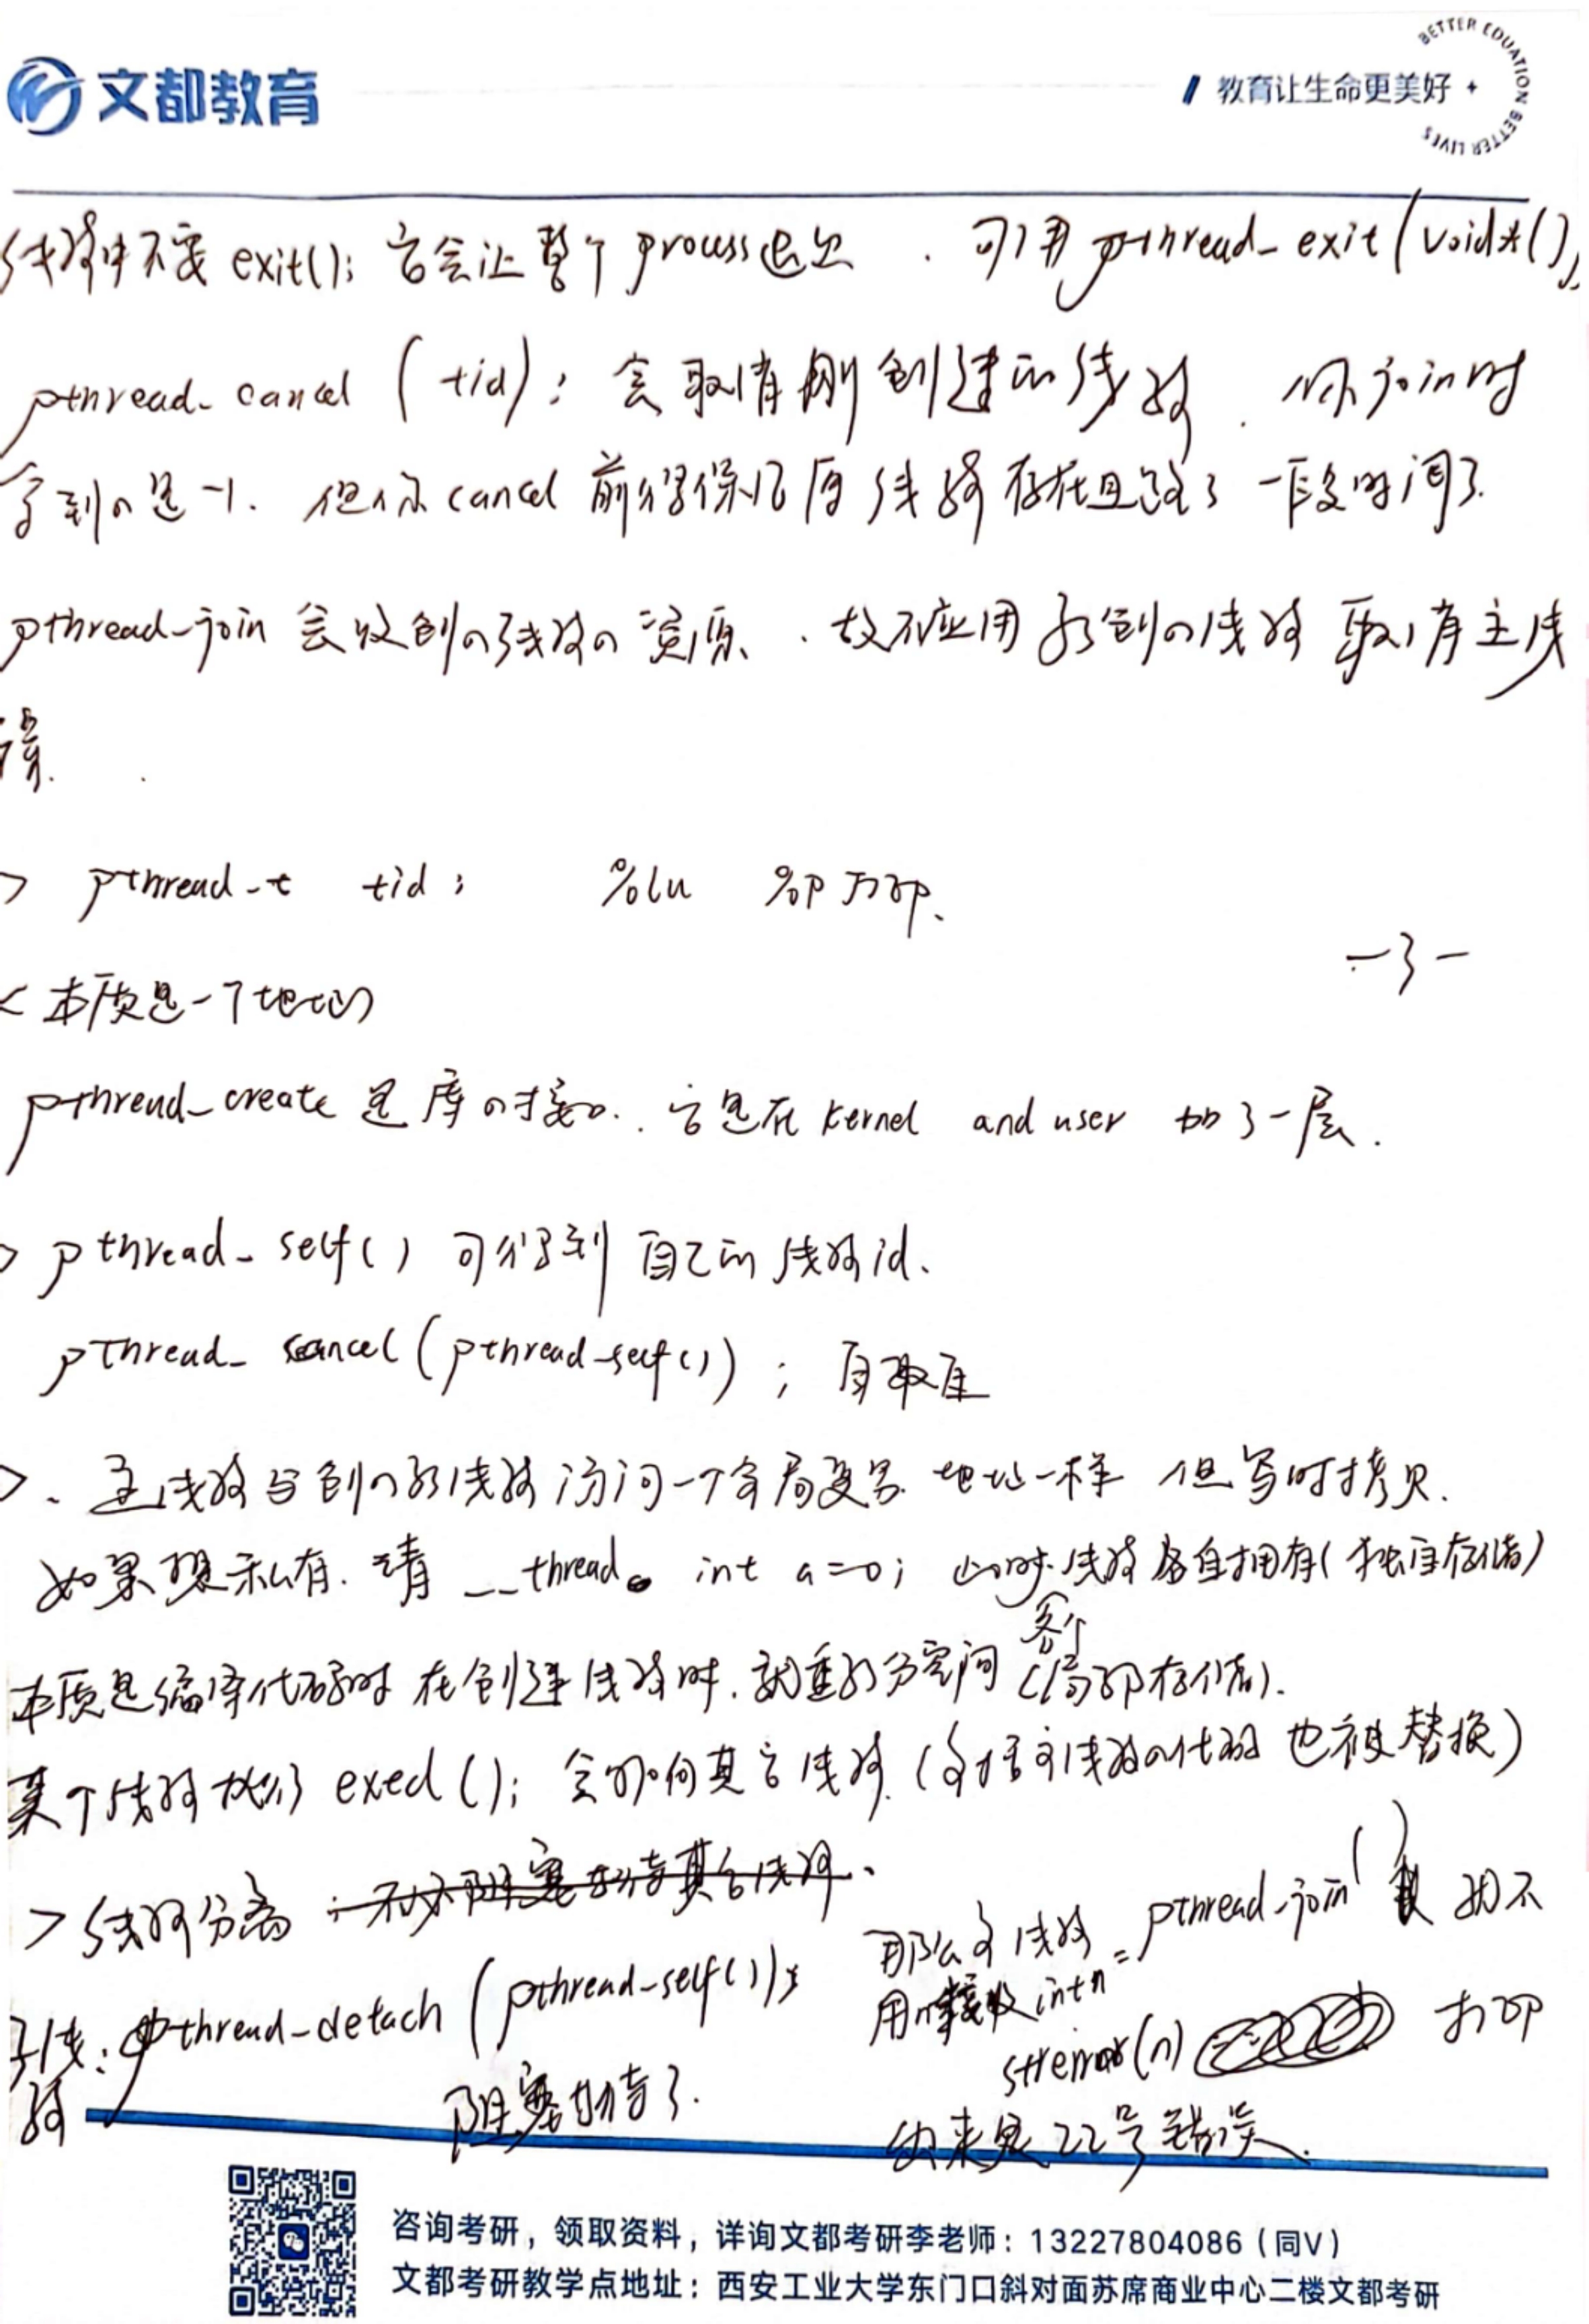 文都教育
教育让生命更美好
BETTER EDUATION BETTER LIVES
线程中不要 exit(); 它会让整个 process 退出. 可用 pthread_exit(void*();
pthread_cancel (tid); 会取消刚创建的线程. 你 join 时
拿到的是 -1. 但你 cancel 前得保证原线程存在且跑了一段时间了
pthread_join 会收创的线程的资源. 故不应用新创的线程取消主线
程.
> pthread_t tid; %lu %p 打印.
-3-
< 本质是一个地址
pthread_create 是库的接口. 它是在 kernel and user 加了一层.
> pthread_self() 可得到自己的线程 id.
pthread_cancel(pthread_self()); 自取
>. 主线程与创的新线程访问一个全局变量 地址一样 但写时拷贝.
如果想私有. 请 __thread int a=0; 此时线程各自拥有(独立存储)
各个
本质是编译代码时 在创建线程时. 就重新分空间 (局部存储).
某个线程执行 exed(); 会影响其它线程. (包括主线程的代码也被替换)
> 线程分离: 不必阻塞等待其它线程.
那么主线程 = pthread_join() 却不
用n接收 int n
子线: pthread_detach (pthread_self());
程
strerror(n) 打印
阻塞等待了.
出来是 22号错误.
咨询考研，领取资料，详询文都考研李老师：13227804086（同V）
文都考研教学点地址：西安工业大学东门口斜对面苏席商业中心二楼文都考研